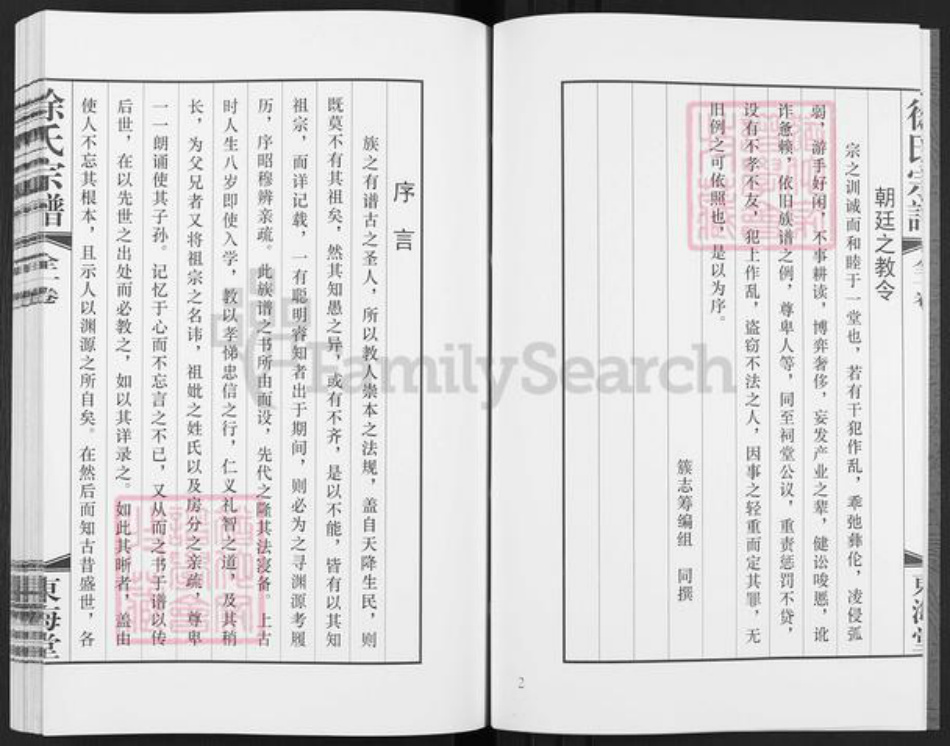 徐氏宗谱
朝廷之教令
宗之训诫而和睦于一堂也，若有干犯作乱，乖弛彝伦，凌侵孤
弱，游手好闲，不事耕读，博弈奢侈，妄发产业之辈，健讼唆慝，讹
诈惫赖，依旧族谱之例，尊卑人等，同至祠堂公议，重责惩罚不贷，
设有不孝不友，犯上作乱，盗窃不法之人，因事之轻重而定其罪，无
旧例之可依照也，是以为序。
簇志筹编组　同撰
東海堂
2
序言
族之有谱古之圣人，所以教人崇本之法规，盖自天降生民，则
既莫不有其祖矣，然其知愚之异，或有不齐，是以不能，皆有以其知
祖宗，而详记载，一有聪明睿知者出于期间，则必为之寻渊源考履
历，序昭穆辨亲疏。此族谱之书所由而设，先代之隆其法寖备。上古
时人生八岁即使入学，教以孝悌忠信之行，仁义礼智之道，及其稍
长，为父兄者又将祖宗之名讳，祖妣之姓氏以及房分之亲疏，尊卑
一一朗诵使其子孙。记忆于心而不忘言之不已，又从而之书于谱以传
后世，在以先世之出处而必教之，如以其详录之。如此其晰者，盖由
使人不忘其根本，且示人以渊源之所自矣。在然后而知古昔盛世，各
徐氏宗譜
全二卷
東海堂
FamilySearch